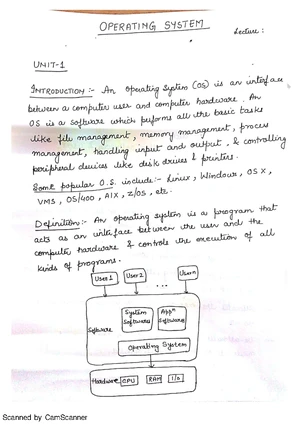 OPERATING SYSTEM
Lecture :
UNIT-1
INTRODUCTION :- An Operating System (OS) is an interface
between a computer user and computer hardware. An
OS is a software which performs all the basic tasks
like file management, memory management, process
management, handling input and output, & controlling
peripheral devices like disk drives & printers.
Some popular O.S. include:- Linux, Windows, OS X,
VMS, OS/400, AIX, z/OS, etc.
Definition:- An operating system is a program that
acts as an interface between the user and the
computer hardware & controls the execution of all
kinds of programs.
User1 User2 ... Usern
System Softwares Appn Softwares
Software
Operating System
Hardware CPU RAM I/O
Scanned by CamScanner